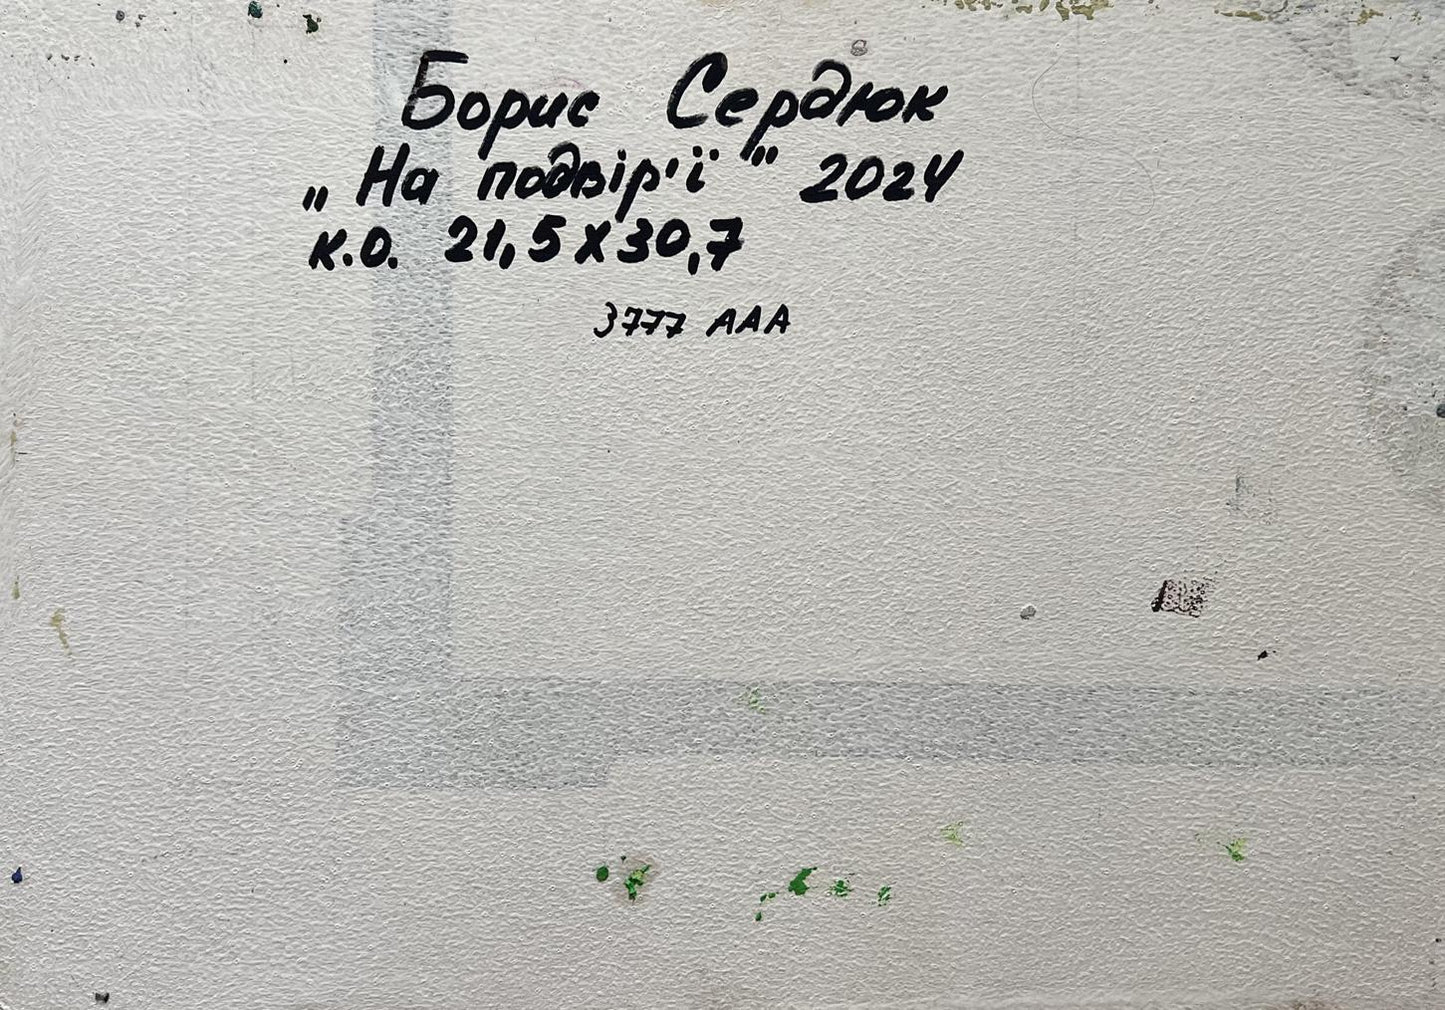 Борис Сердюк
„На подвір'ї" 2024
к.о. 21,5х30,7
3777 ААА